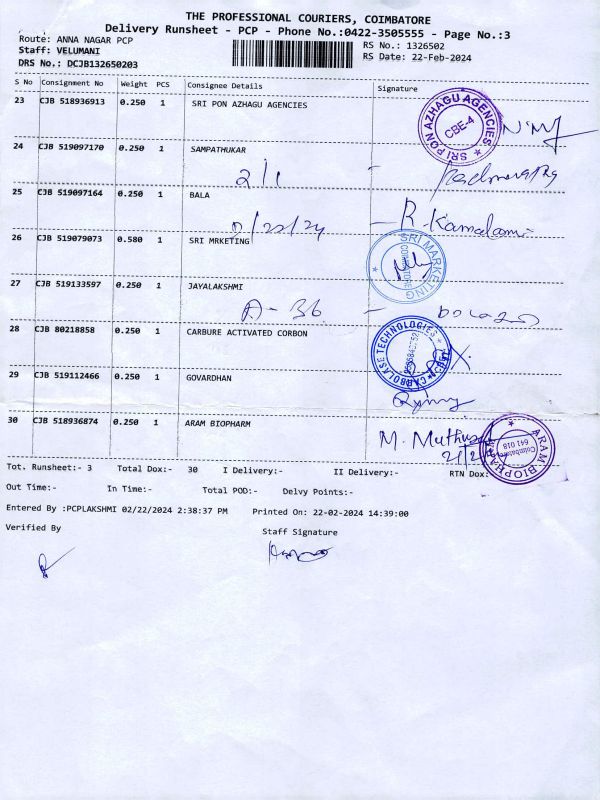 THE PROFESSIONAL COURIERS, COIMBATORE
Delivery Runsheet - PCP - Phone No.:0422-3505555 - Page No.:3
Route: ANNA NAGAR PCP
RS No.: 1326502
Staff: VELUMANI
RS Date: 22-Feb-2024
DRS No.: DCJB132650203
S No Consignment No Weight PCS Consignee Details Signature
23 CJB 518936913 0.250 1 SRI PON AZHAGU AGENCIES
SRI PON AZHAGU AGENCIES CBE-4
24 CJB 519097170 0.250 1 SAMPATHUKAR
2/1
25 CJB 519097164 0.250 1 BALA
R. Kamalam
26 CJB 519079073 0.580 1 SRI MRKETING
SRI MARKETING
27 CJB 519133597 0.250 1 JAYALAKSHMI
A - 36 -
28 CJB 80218858 0.250 1 CARBURE ACTIVATED CORBON
TECHNOLOGIES
29 CJB 519112466 0.250 1 GOVARDHAN
30 CJB 518936874 0.250 1 ARAM BIOPHARM
M. Muthu
ARAM BIOPHARM Coimbatore 641 018
Tot. Runsheet:- 3 Total Dox:- 30 I Delivery:- II Delivery:- RTN Dox:
Out Time:- In Time:- Total POD:- Delvy Points:-
Entered By :PCPLAKSHMI 02/22/2024 2:38:37 PM Printed On: 22-02-2024 14:39:00
Verified By Staff Signature